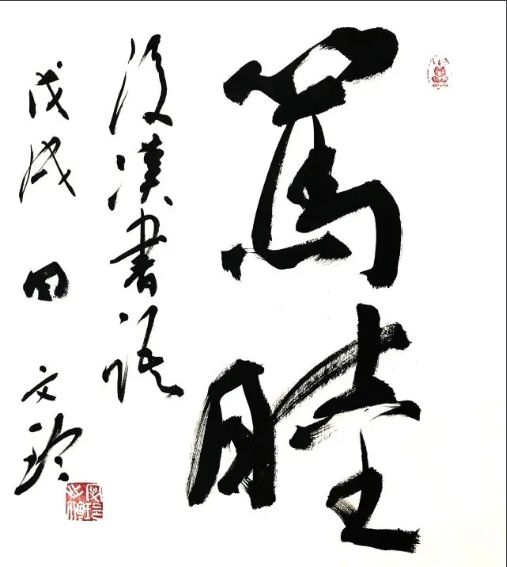 篤睦
後漢書語
戊戌 田文玲